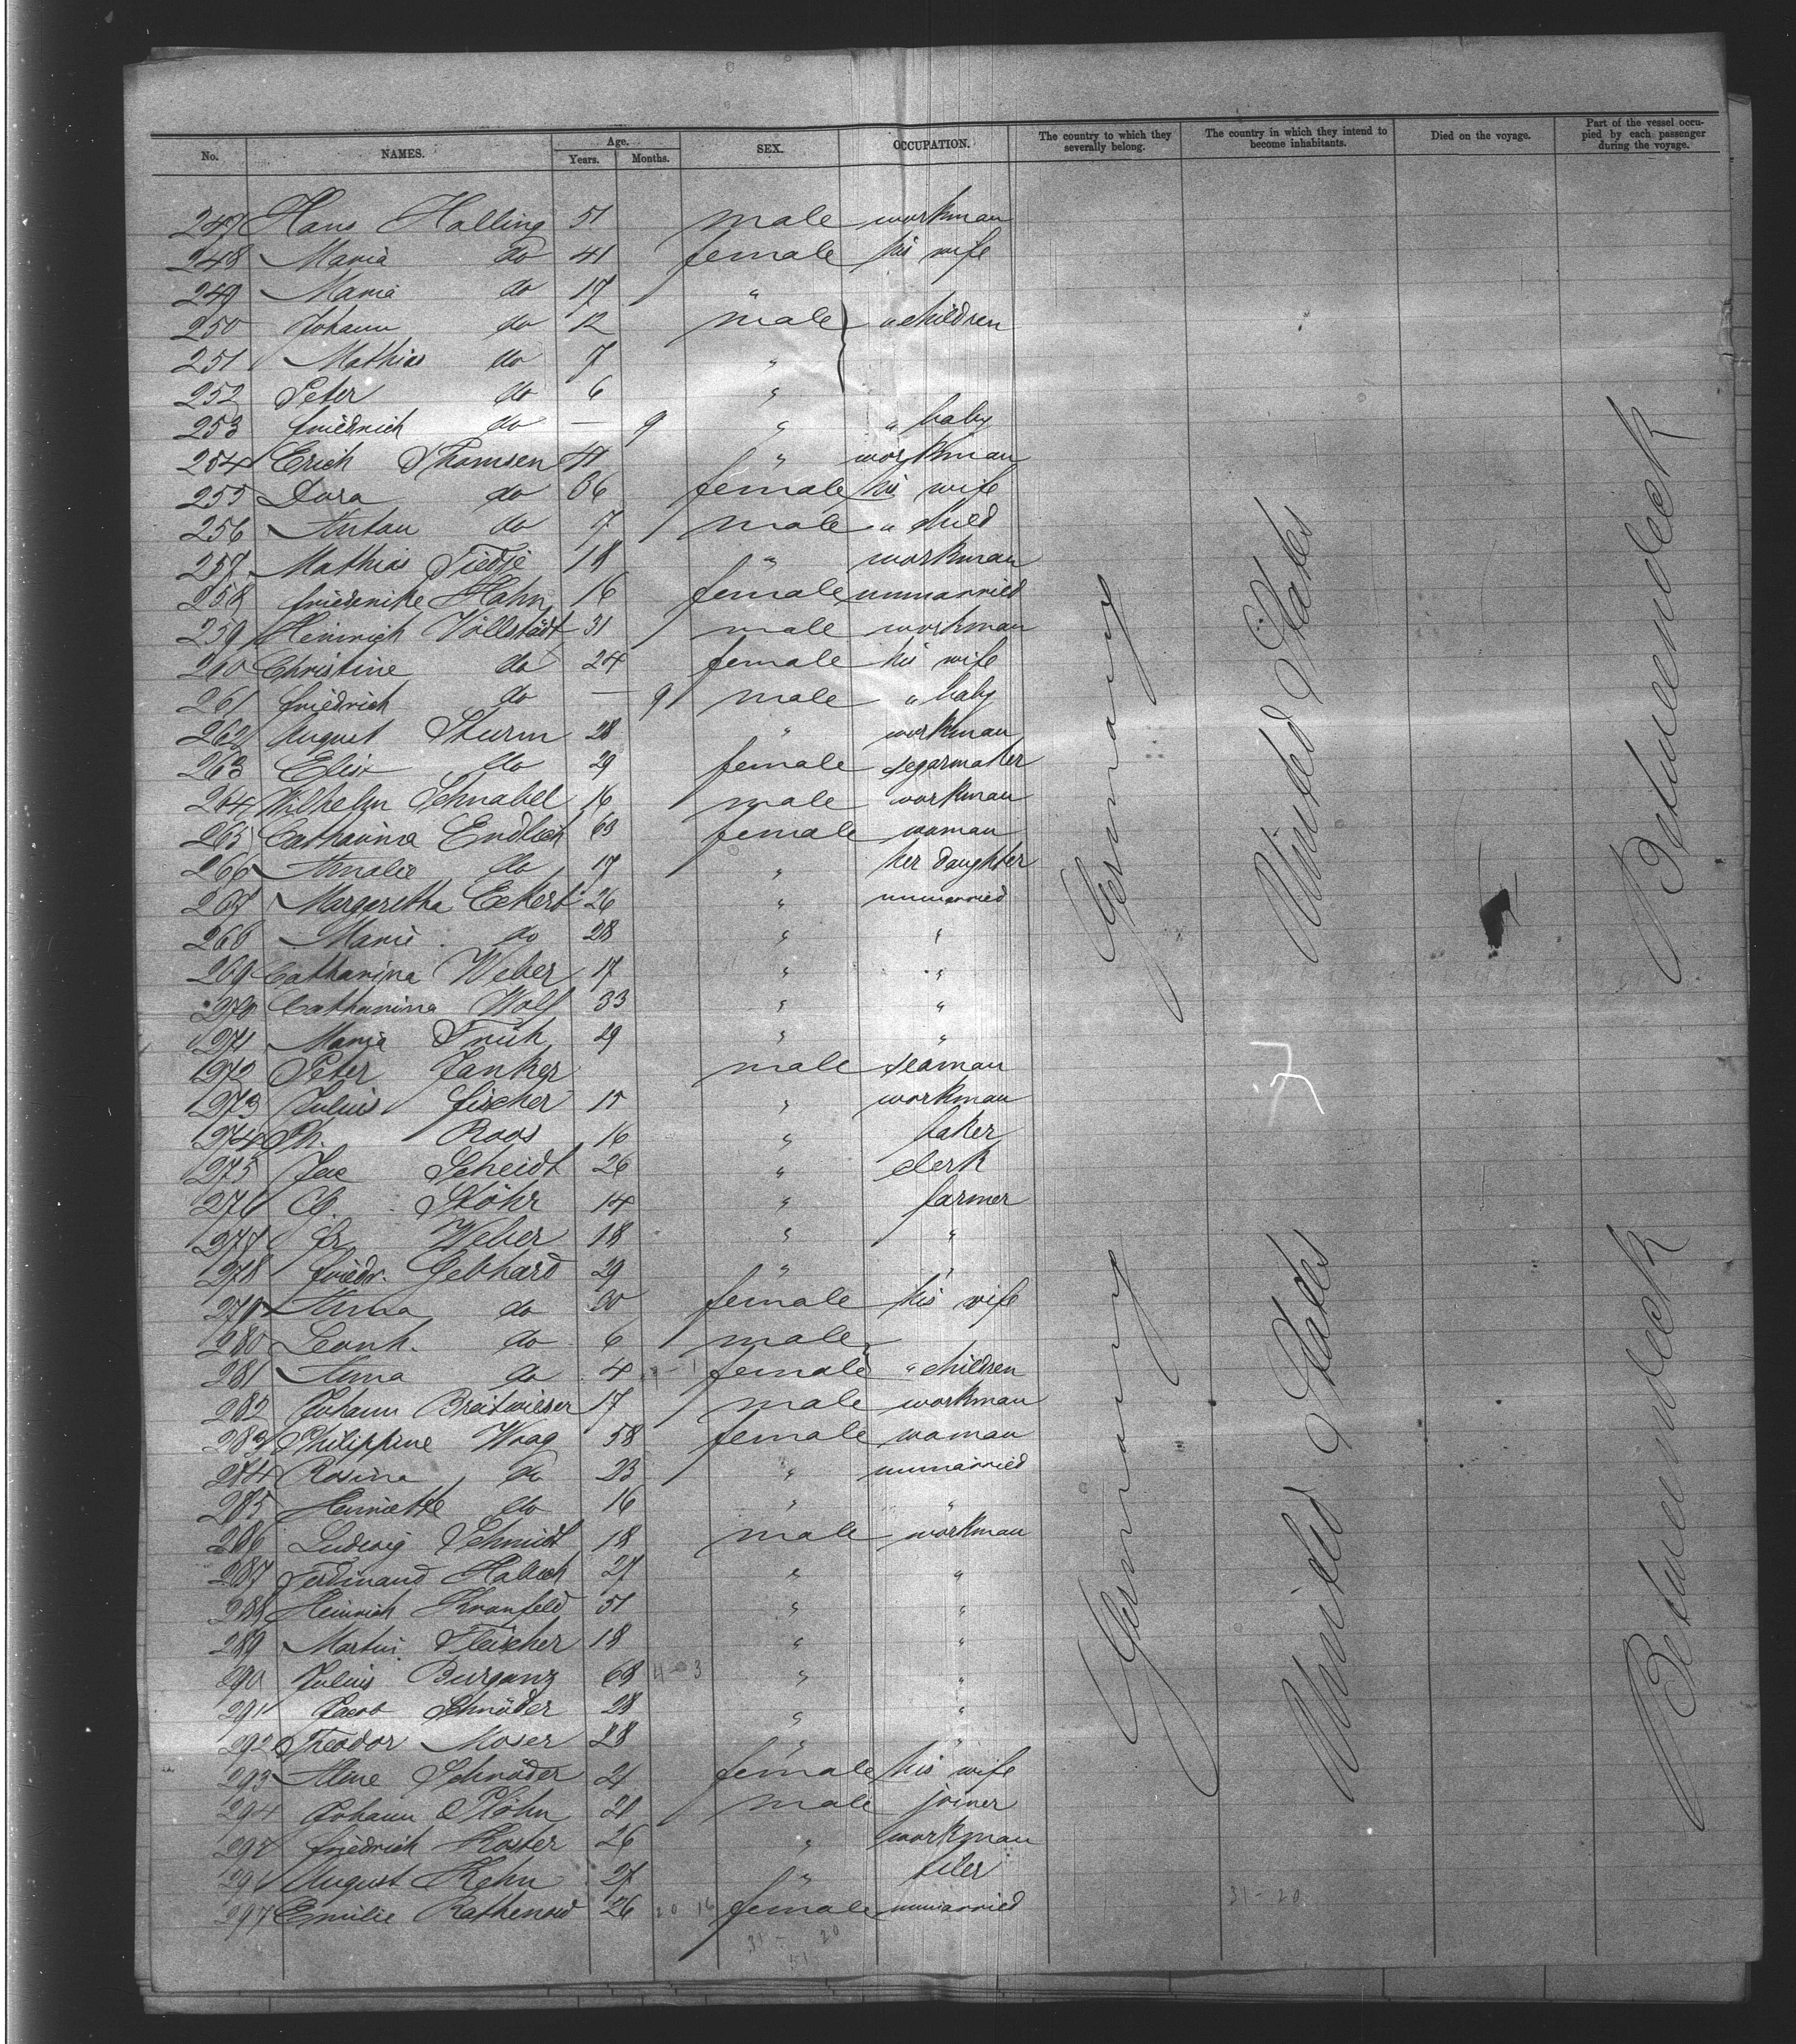 No. NAMES. Age. Years. Months. SEX. OCCUPATION. The country to which they severally belong. The country in which they intend to become inhabitants. Died on the voyage. Part of the vessel occupied by each passenger during the voyage.
247 Hans Halling 51 male workman
248 Maria do 41 female his wife
249 Maria do 17 "
250 Johann do 12 male " children
251 Mathias do 7 "
252 Peter do 6 "
253 Friedrich do — 9 " " baby
254 Erich Thomsen " workman
255 Dora do 36 female his wife
256 Antau do 7 male " child
257 Mathias Tiedje 18 " workman
258 Friederike Hahn 16 female unmarried
259 Heinrich Vollstädt 31 male workman
260 Christine do 24 female his wife
261 Friedrich do — 9 male " baby
262 August Sturm 28 " workman
263 Elise do 29 female segarmaker
264 Wilhelm Schnabel 16 male workman
265 Catharina Endlich 63 female woman
266 Amalie do 17 " her daughter
267 Margaretha Eckert 26 " unmarried
268 Marie do 28 " "
269 Catharina Weber 17 " "
270 Catharina Wolf 33 " "
271 Maria Früh 29 " "
272 Peter Janker male seaman
273 Julius Fischer 15 " workman
274 Ph. Roos 16 " baker
275 Jac Scheidt 26 " clerk
276 Stöhr 14 " farmer
277 Fr Weber 18 " "
278 Friedr. Gebhard 29 " "
279 Anna do 30 female his wife
280 Leonh. do 6 male
281 Anna do 4 female " children
282 Johann Breitwieser 17 male workman
283 Philippine Waag 58 female woman
284 Rosina do 23 " unmarried
285 Henriette do 16 " "
286 Ludwig Schmidt 18 male workman
287 Ferdinand Habich 27 " "
288 Heinrich Kranfeld 51 " "
289 Martin Fleischer 18 " "
290 Julius Burganz 68 " "
291 Jacob Schröder 28 " "
292 Theodor Moser 28 " "
293 Aline Schröder 21 female his wife
294 Johann Plöhn 21 male joiner
295 Friedrich Koster 26 " workman
296 August Kehn 27 " filer
297 Emilie Rathenow 26 female unmarried
Germany United States Betweendeck
Germany United States Betweendeck
31-20